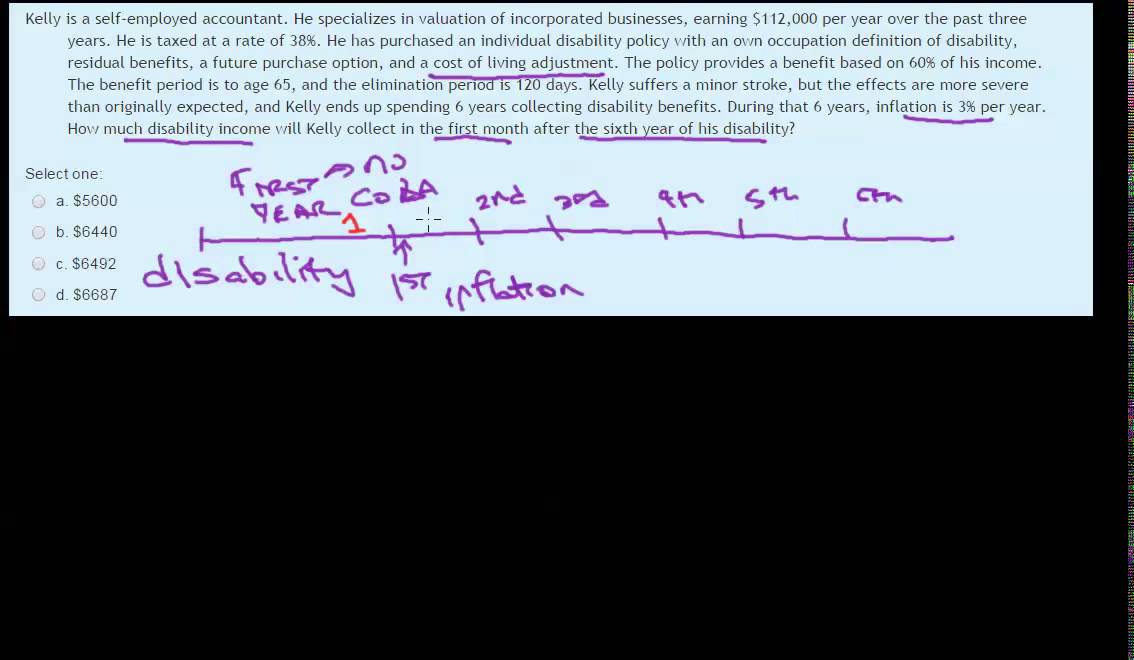 Kelly is a self-employed accountant. He specializes in valuation of incorporated businesses, earning $112,000 per year over the past three
years. He is taxed at a rate of 38%. He has purchased an individual disability policy with an own occupation definition of disability,
residual benefits, a future purchase option, and a cost of living adjustment. The policy provides a benefit based on 60% of his income.
The benefit period is to age 65, and the elimination period is 120 days. Kelly suffers a minor stroke, but the effects are more severe
than originally expected, and Kelly ends up spending 6 years collecting disability benefits. During that 6 years, inflation is 3% per year.
How much disability income will Kelly collect in the first month after the sixth year of his disability?
Select one:
a. $5600
b. $6440
c. $6492
d. $6687
FIRST → no
YEAR COLA
1
2nd 3rd 4th 5th 6th
disability 1st inflation